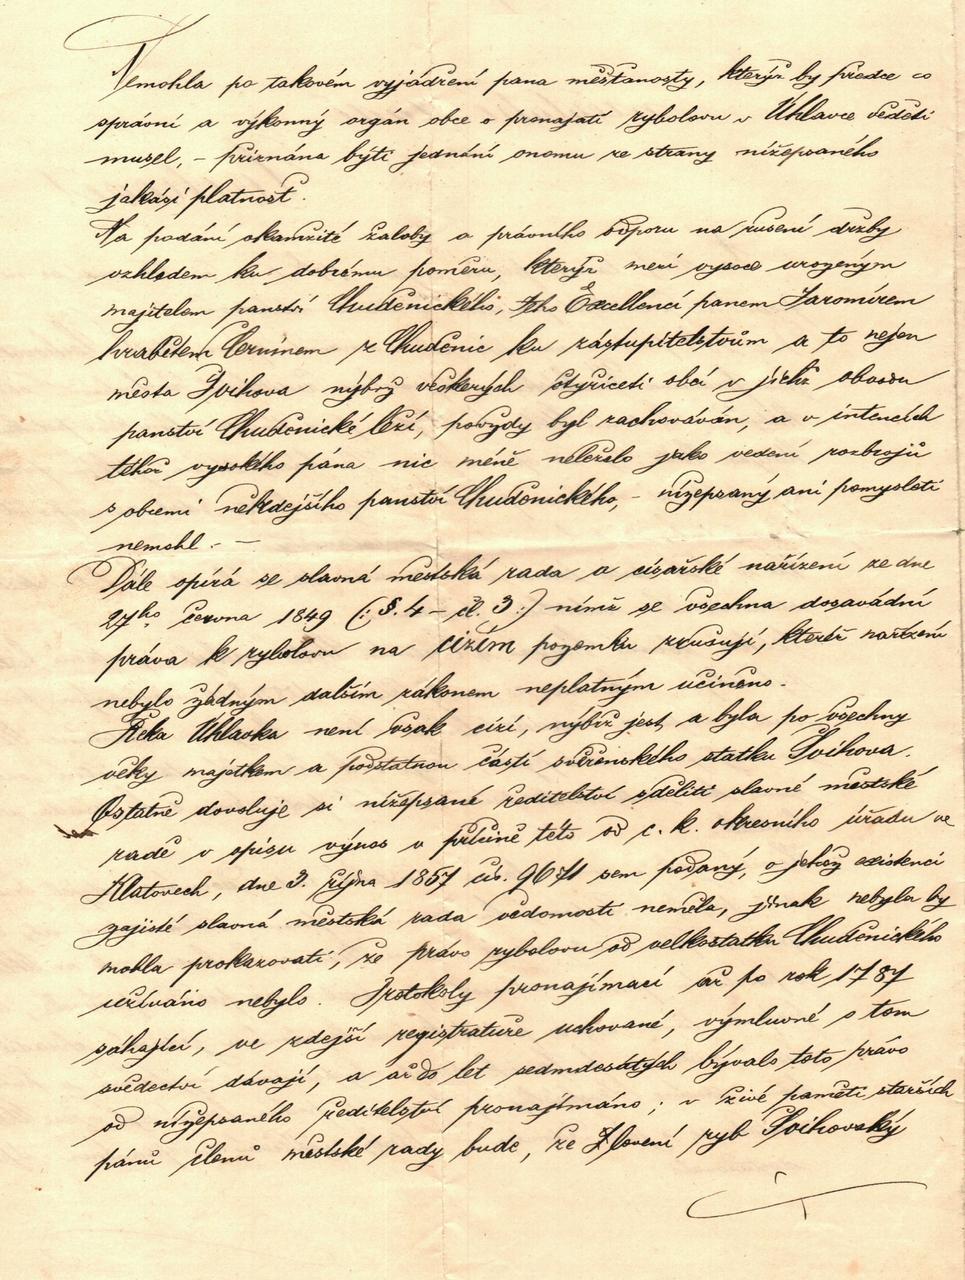 Nemohla po takovém vyjádření pana městanosty, kterýž by předce co
správní a výkonný orgán obce o pronajatí rybolovu v Uhlavce věděti
musel, – přiznána býti jednání onomu ze strany nížepsaného
jakási platnost.
Na podání okamžité žaloby a právního odporu na rušení držby
vzhledem ku dobrému poměru, kterýž mezi vysoce urozeným
majitelem panství Chudenického, Jeho Excellencí panem Jaromírem
hrabětem Černínem z Chudenic ku zástupitelstvům a to nejen
města Švihova nýbrž veškerých čtyřiceti obcí v jichž obvodu
panství Chudenické leží, povždy byl zachováván, a v intencích
téhož vysokého pána nic méně neleželo jako vedení rozbrojů
s obcemi někdejšího panství Chudenického, – nížepsaný ani pomysleti
nemohl. –
Dále opírá se slavná městská rada o císařské nařízení ze dne
27ho června 1849 (: §. 4 – čl. 3 :) nímž se všechna dosavádní
práva k rybolovu na cizím pozemku zrušují, kteréž nařízení
nebylo žádným dalším zákonem neplatným učiněno.
Řeka Uhlavka není však cizí, nýbrž jest, a byla po všechny
věky majetkem a podstatnou částí svěřenského statku Švihova.
Ostatně dovoluje si nížepsané ředitelství sděliti slavné městské
radě v opisu výnos v příčině této od c. k. okresního úřadu ve
Klatovech, dne 3. října 1857 čís. 9671 sem podaný, o jehož existenci
zajisté slavná městská rada vědomosti neměla, jinak nebyla by
mohla prokazovati, že právo rybolovu od velkostatku Chudenického
užíváno nebylo. Protokoly pronajímací až po rok 1787
sahající, ve zdejší registratuře uchované, výmluvné o tom
svědectví dávají, a až do let sedmdesátých bývalo toto právo
od nížepsaného ředitelství pronajímáno; v živé paměti starších
pánů členů městské rady bude, že zlovení ryb Švihovský